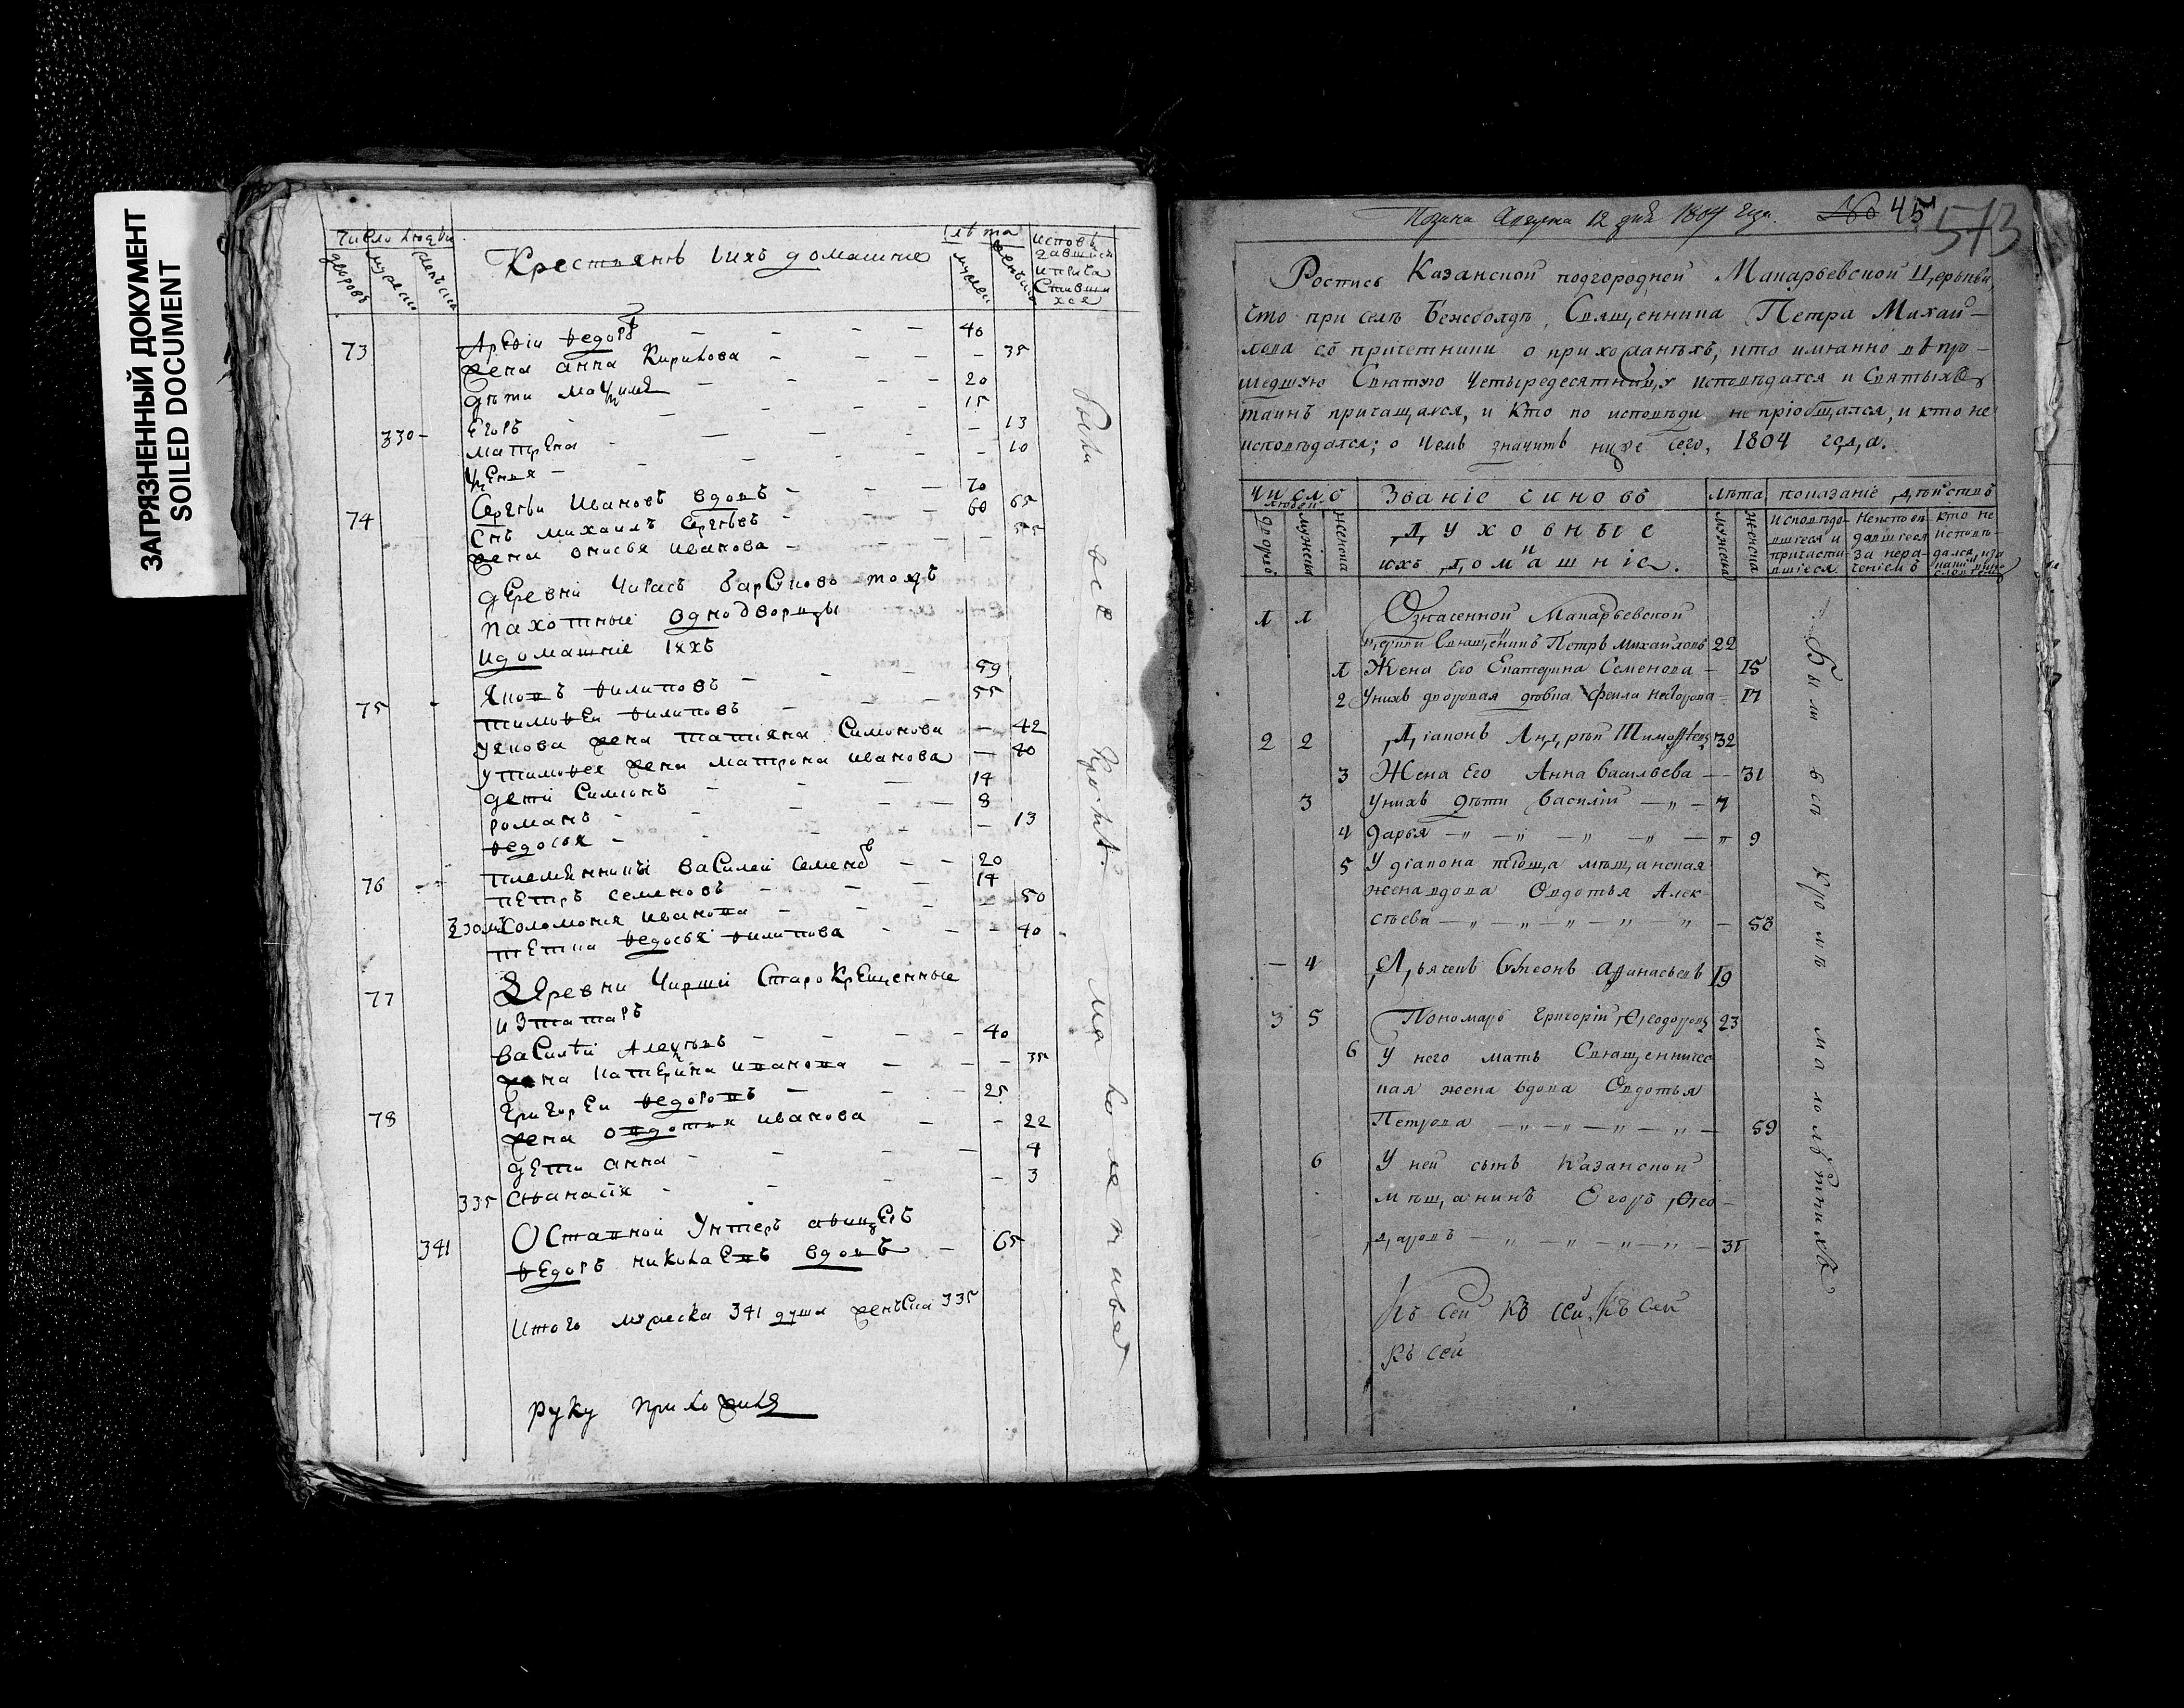 ЗАГРЯЗНЕННЫЙ ДОКУМЕНТ
SOILED DOCUMENT
Число людеи
дворовъ
мужеска
женъска
Крестьянъ ихъ домашние
лѣта
мужеи
женъска
исповѣ
давшися
и прича
стивши
хся
73 Арѳѳіи Ѳедоровъ — — — — 40
жена анна Кирилова — — — — 35
дѣти Маѯимъ — — — 20
Егоръ — — — — 15
330 — матрена — — — — 13
Ѯенья — — — — 10
74 Сергѣи Ивановъ вдовъ — — — 70
Снъ михаилъ Сергѣевъ — — — 60 65
жена онисья иванова — — — — 55
деревни Чигасъ барсково тожъ
пахотные однодворцы
и домашніе ихъ
75 Яковъ Филиповъ — — — 59
тимоѳеи Филиповъ — — — 55
У якова жена татияна Симонова — 42
У тимоѳея жена матрона иванова — 40
дети Симионъ — — — 14
романъ — — — — 8
ѳедосья — — — — 13
76 племянники Василей семеновъ — — 20
петръ семеновъ — — — 14
Соломония иванова — — — 50
тетка ѳедосья Филипова — — — 40
77 Деревни Чирши Старокрещенные
изтатаръ
Василѣи Алеѯѣевъ — — — 40
жена Катерина иванова — — — 35
78 григореи ѳедоровъ — — — 25
жена овдотья иванова — — 22
дети анна — — — — 4
335 Аѳанасія — — — 3
341 Оставной Унтеръ аѳицеръ
ѳедоръ николаевъ вдовъ — 65
Итого мужеска 341 душа женъска 335
руку приложилъ
были все Кромѣ малолѣтнихъ
Подана Августа 12 дня 1804 года. № 45
573
Роспись Казанской подгородней Макарьевской Церькви,
что при селѣ Бежболдѣ, Священника Петра Михай-
лова съ причетники о прихожанѣхъ, кто имянно въ про-
шедшую Святую Четыредесятницу исповѣдался и Святыхъ
таинъ причащался, и Кто по исповѣди не пріобщался, и кто не
исповѣдался; о чемъ значитъ ниже сего, 1804 года.
Число людей
Званіе чиновъ
лѣта
показаніе дѣйствъ
дворовъ
мужска
женска
Духовные
и
ихъ домашніе.
мужска
женска
исповѣдо-
вшіеся и
причасти-
вшіеся
Неиспов-
давшіеся
за нера-
ченіемъ
кто не
исповѣ-
дался
1 1 Означенной Макарьевской
церкви Священникъ Петръ Михайловъ 22
1 Жена Его Екатерина Семенова — 15
2 У нихъ дворовая девка Ѳекла — 17
2 2 Діаконъ Андрѣй Тимоѳѣевъ 32
3 Жена Его Анна Васильева — — 31
3 У нихъ дѣти Василій — „ — 7
4 Дарья — „ — „ — „ — „ — „ 9
5 У діакона тіоща мѣщанская
жена вдова Овдотья Алек-
сѣева — „ — „ — „ — „ — „ — 58
— 4 Дьячекъ Симеонъ Афанасьевъ 19
3 5 Пономарь Григорій Ѳеодоровъ 23
6 У него мать Священничес-
кая жена вдова Овдотья
Петрова — „ — „ — „ — „ — 59
6 У ней сынъ Казанской
мѣщанинъ Егоръ Ѳео-
доровъ — „ — „ — „ — „ — 31
Къ сей къ сей къ сей
къ сей
Были всѣ кромѣ малолѣтнихъ